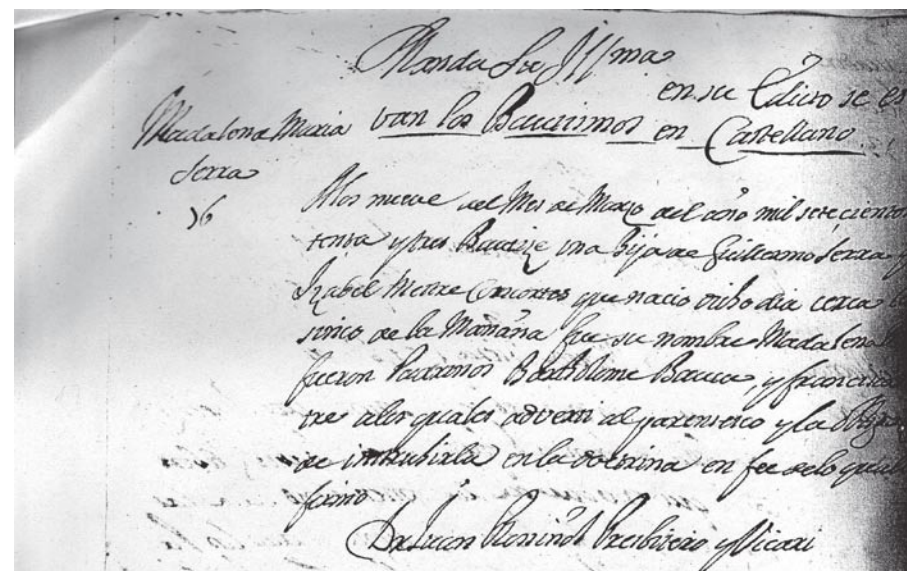 Manda Su Ill^ma en su Edicto se es
van los Bautismos en Castellano
Madalena Maria
Serra
36
A los nueve del Mes de Março del año mil setecientos
tenta y tres Bautize una hija de Guillermo Serra y
Izabel Mestre Consortes que nacio dicho dia cerca
sinco de la Mañana fue su nombre Madalena
fueron Padrinos Bartholome Bauza, y Francisca
tre a los quales adverti el parentesco y la Oblig
de instruhirla en la doctrina en fee de lo qual
firmo
Dr Juan Presbitero y Vicari